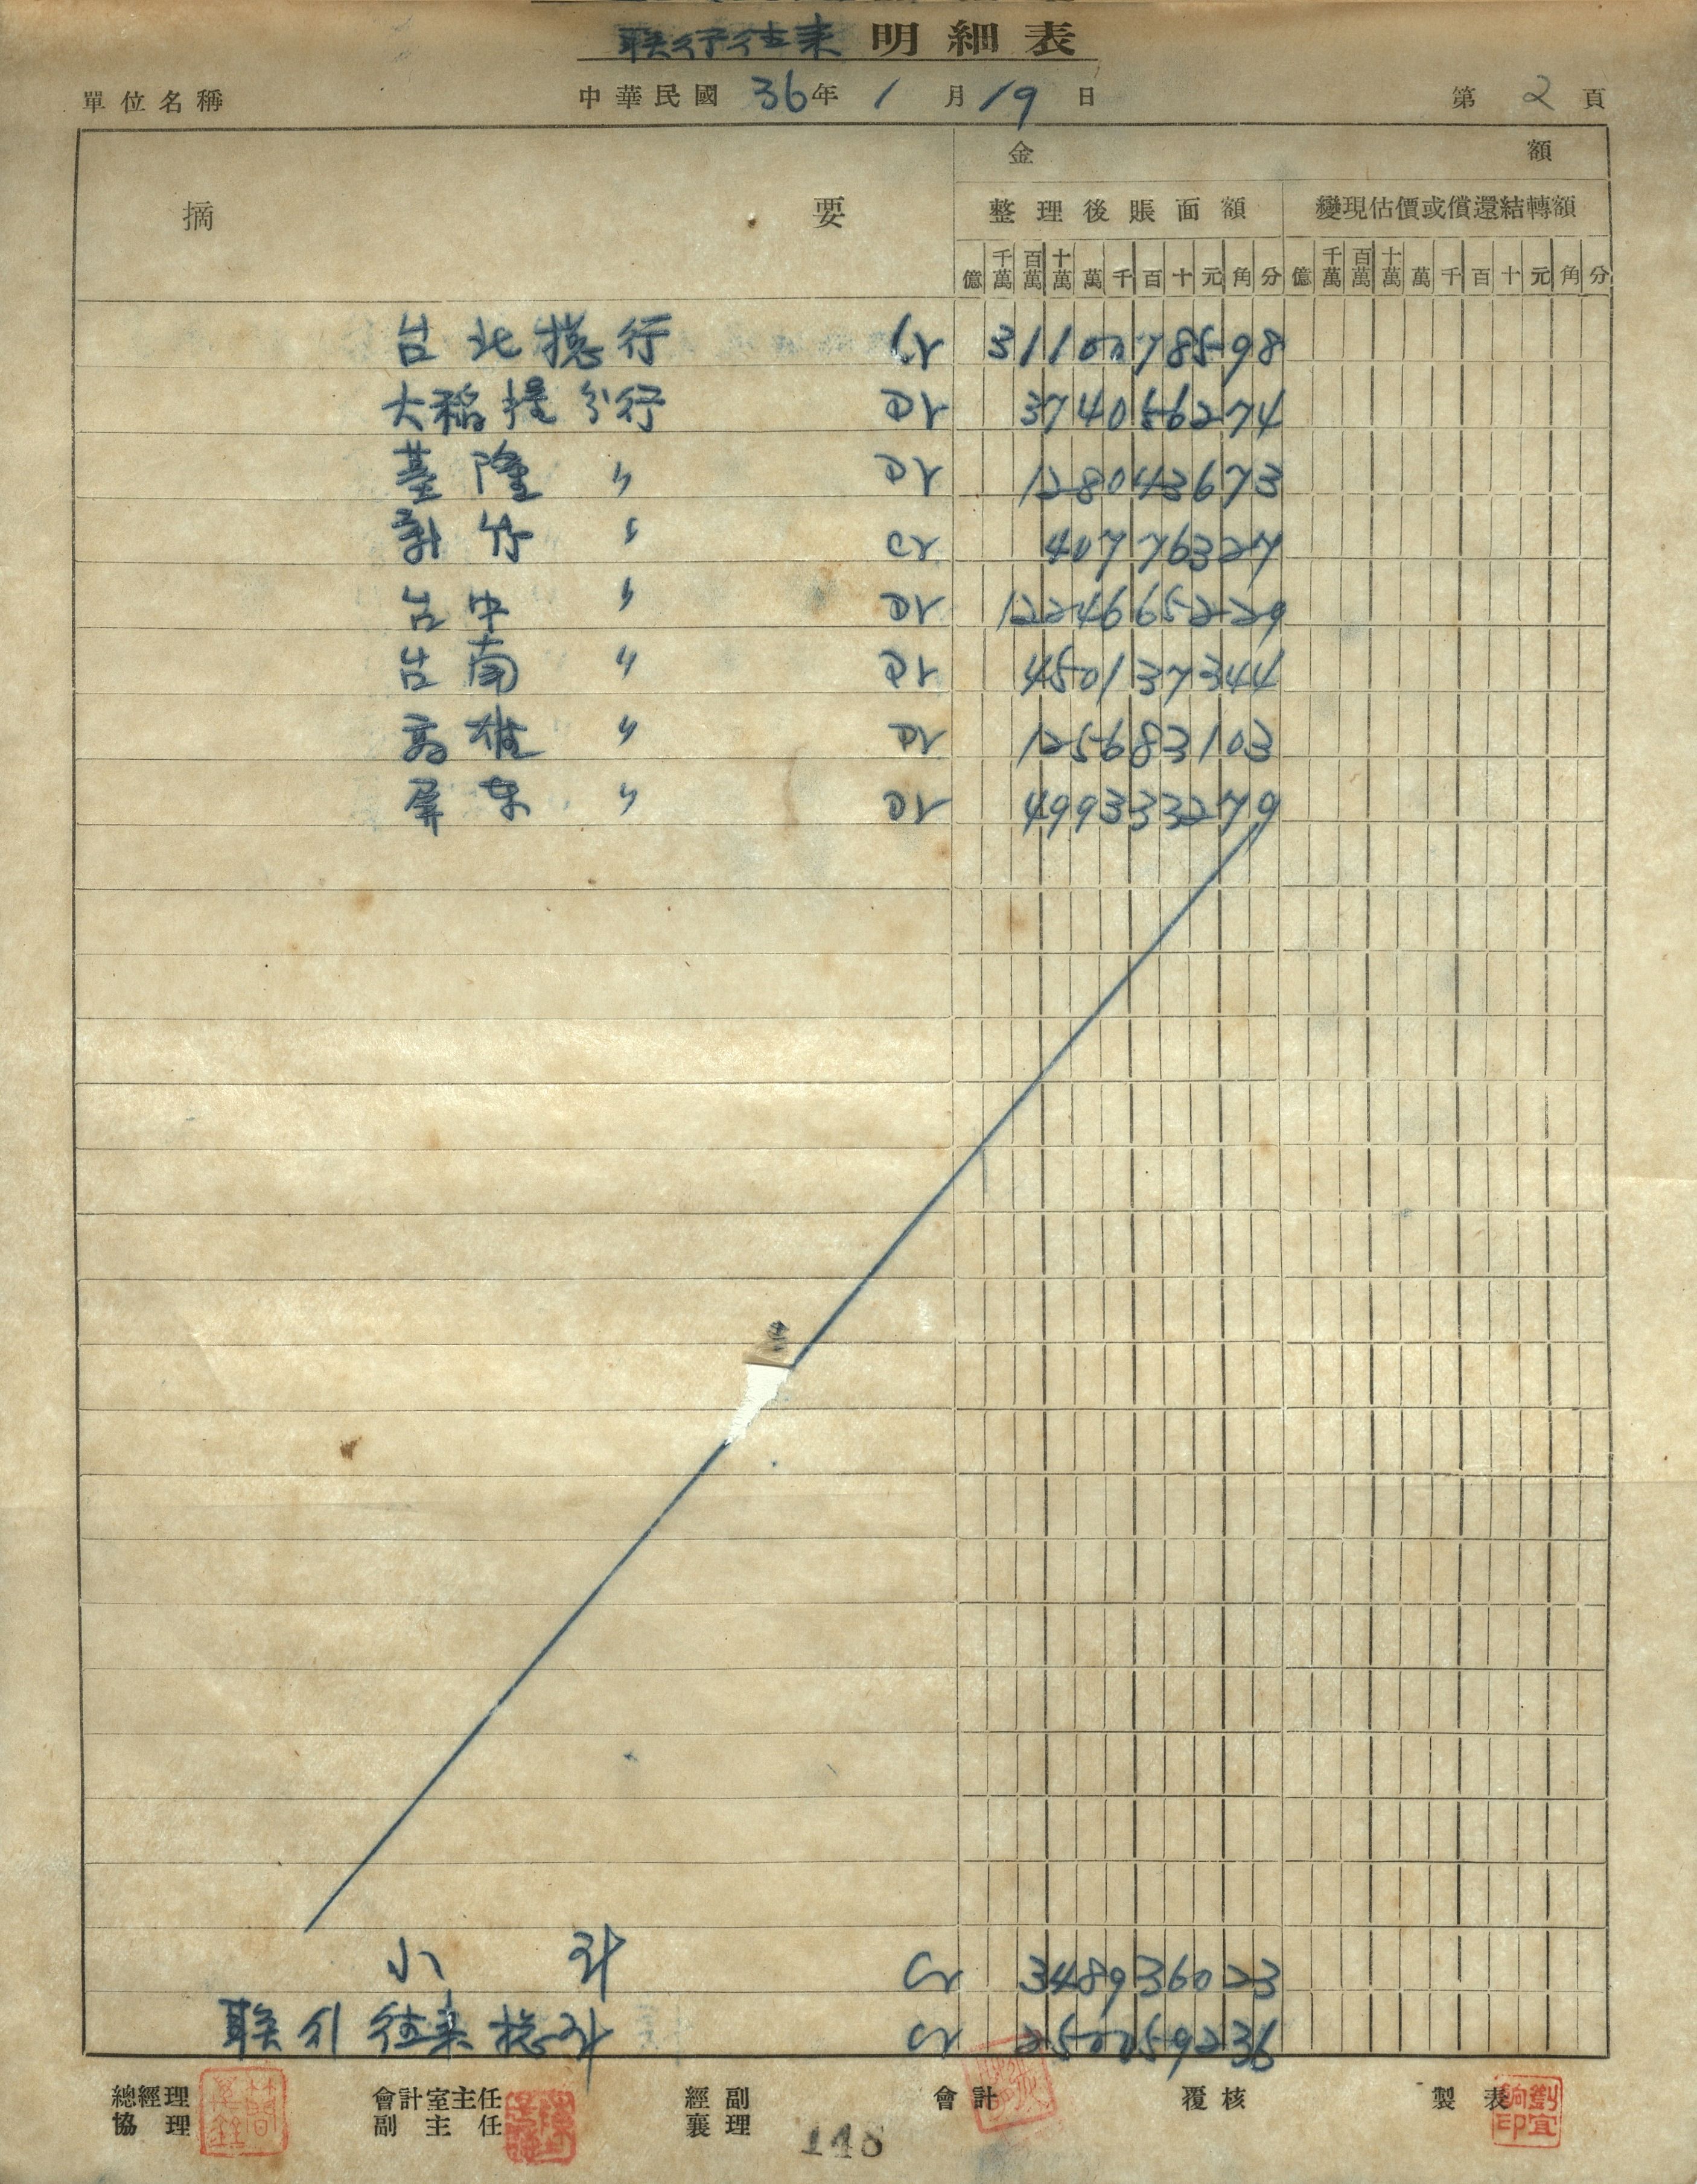 联行往来明細表
單位名稱 中華民國 36年 1月19日 第2頁
摘要 金額
整理後賬面額 變現估價或償還結轉額
億 千萬 百萬 十萬 萬 千 百 十 元 角 分 億 千萬 百萬 十萬 萬 千 百 十 元 角 分
台北總行 Cr 3110078598
大稻埕分行 Dr 374056274
基隆 〃 Dr 128043673
新竹 〃 Cr 40776327
台中 〃 Dr 1224665229
台南 〃 Dr 450137344
高雄 〃 Dr 125683103
屏东 〃 Dr 499333279
小計 Cr 348936023
联行往来總計 Cr 250059236
總經理 會計室主任 經副 會計 覆核 製表
協理 副主任 襄理
劉宜
148